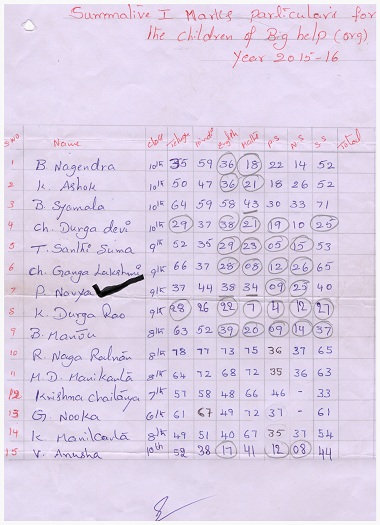 Summative I Marks particulars for
the children of Big help (org)
Year 2015-16
S.NO Name class Telugu Hindi English Maths P.S N.S S.S Total
1 B. Nagendra 10th 35 59 36 18 22 14 52
2 K. Ashok 10th 50 47 36 21 18 26 52
3 B. Syamala 10th 64 59 58 43 30 33 71
4 Ch. Durga devi 10th 29 37 38 21 19 10 25
5 T. Santhi Suma 9th 52 35 29 23 05 15 53
6 Ch. Ganga Lakshmi 9th 66 37 28 08 12 26 65
7 P. Navya 9th 37 44 38 34 09 25 40
8 K. Durga Rao 9th 28 26 22 7 4 12 27
9 B. Manju 8th 63 52 39 20 09 14 37
10 R. Naga Ratnam 8th 78 77 73 75 36 37 65
11 M.D. Manikanta 8th 64 72 68 72 35 36 63
12 Krishma chaitanya 7th 57 58 48 66 46 - 33
13 G. Nooka 6th 61 67 49 72 37 - 61
14 K. Manikanta 8th 49 51 40 67 35 37 54
15 V. Anusha 10th 52 38 17 41 12 08 44